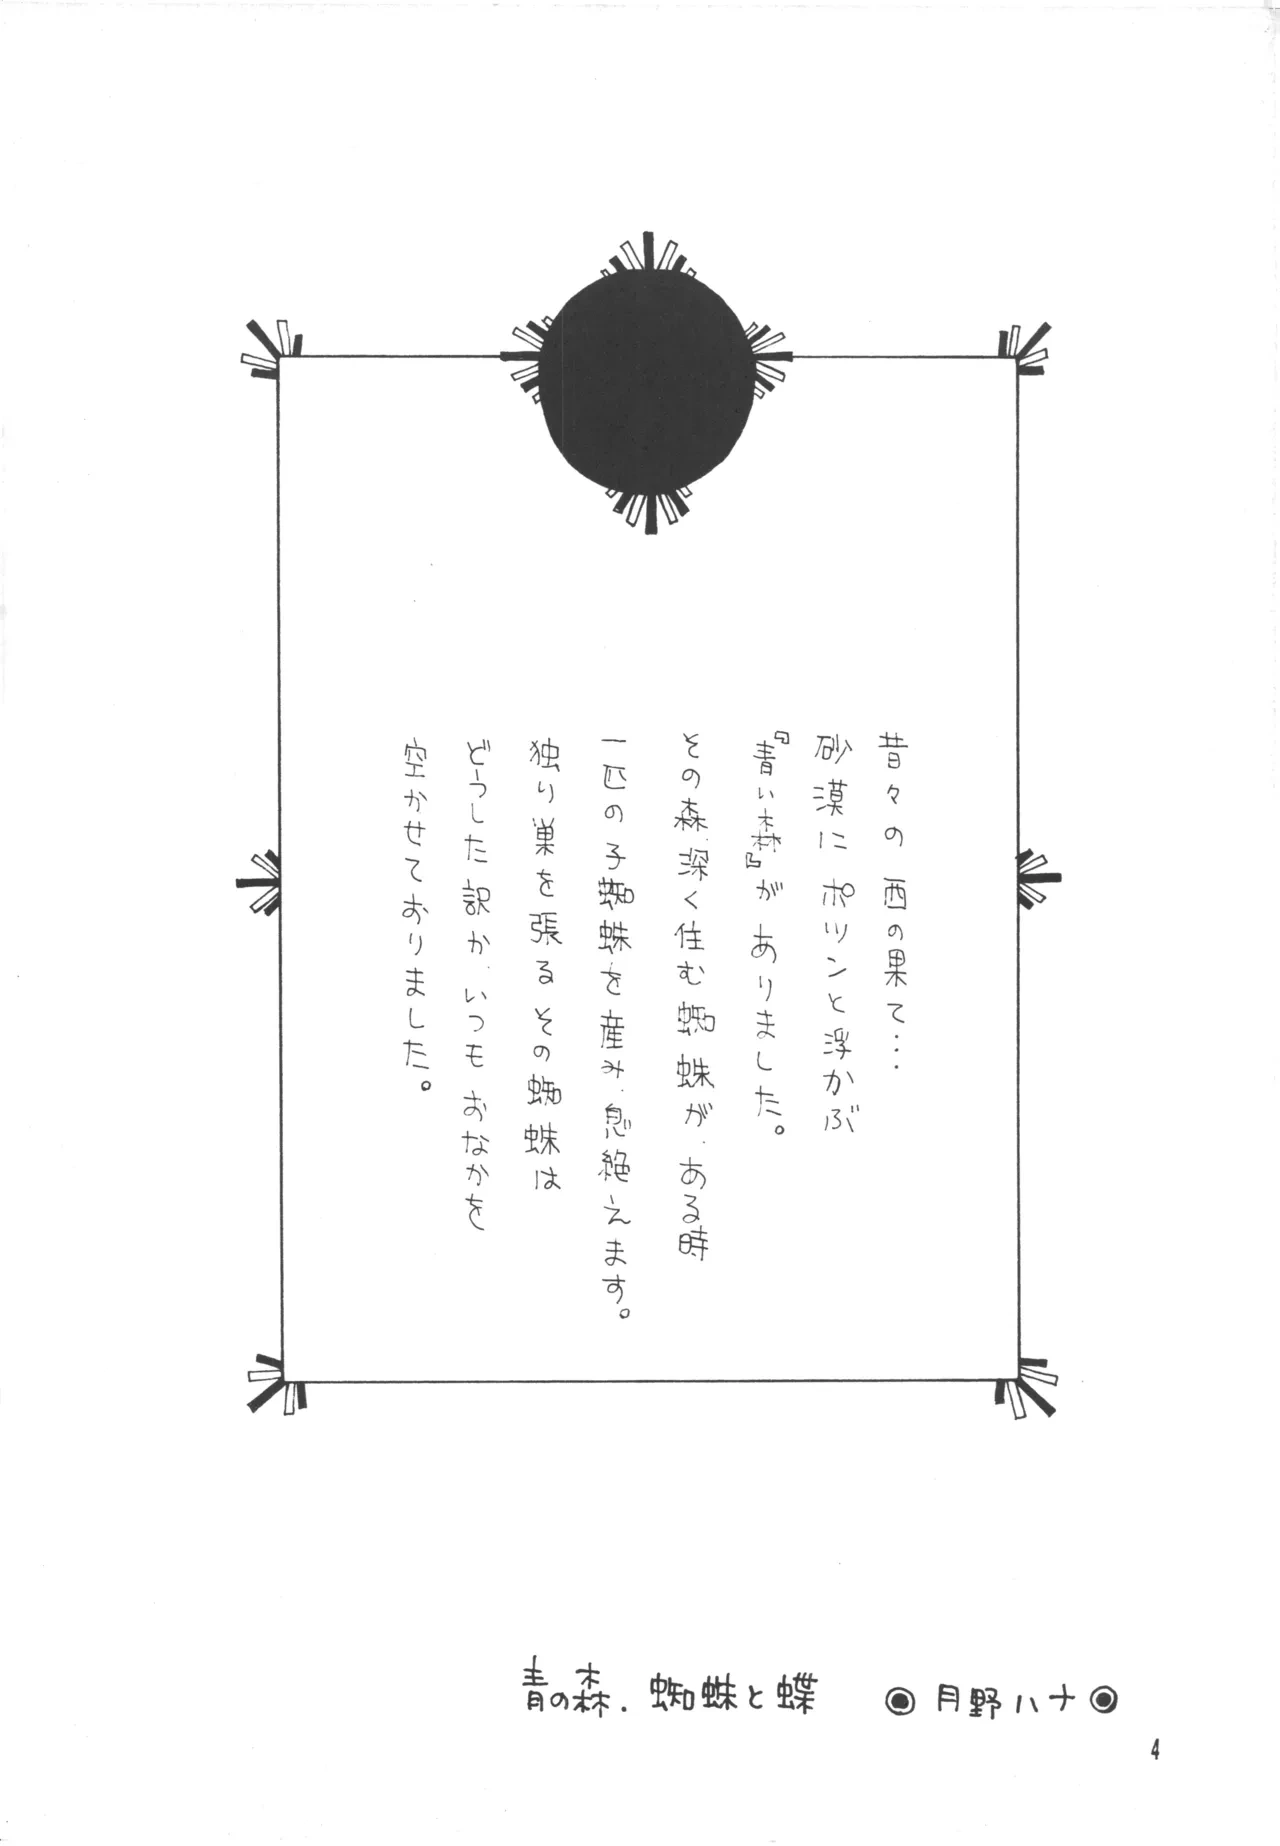 昔々の西の果て…
砂漠にポツンと浮かぶ
『青い森』がありました。
その森深く住む蜘蛛が、ある時
一匹の子蜘蛛を産み、息絶えます。
独り巣を張るその蜘蛛は
どうした訳か、いつもおなかを
空かせておりました。
青の森、蜘蛛と蝶 ◉月野ハナ◉
4